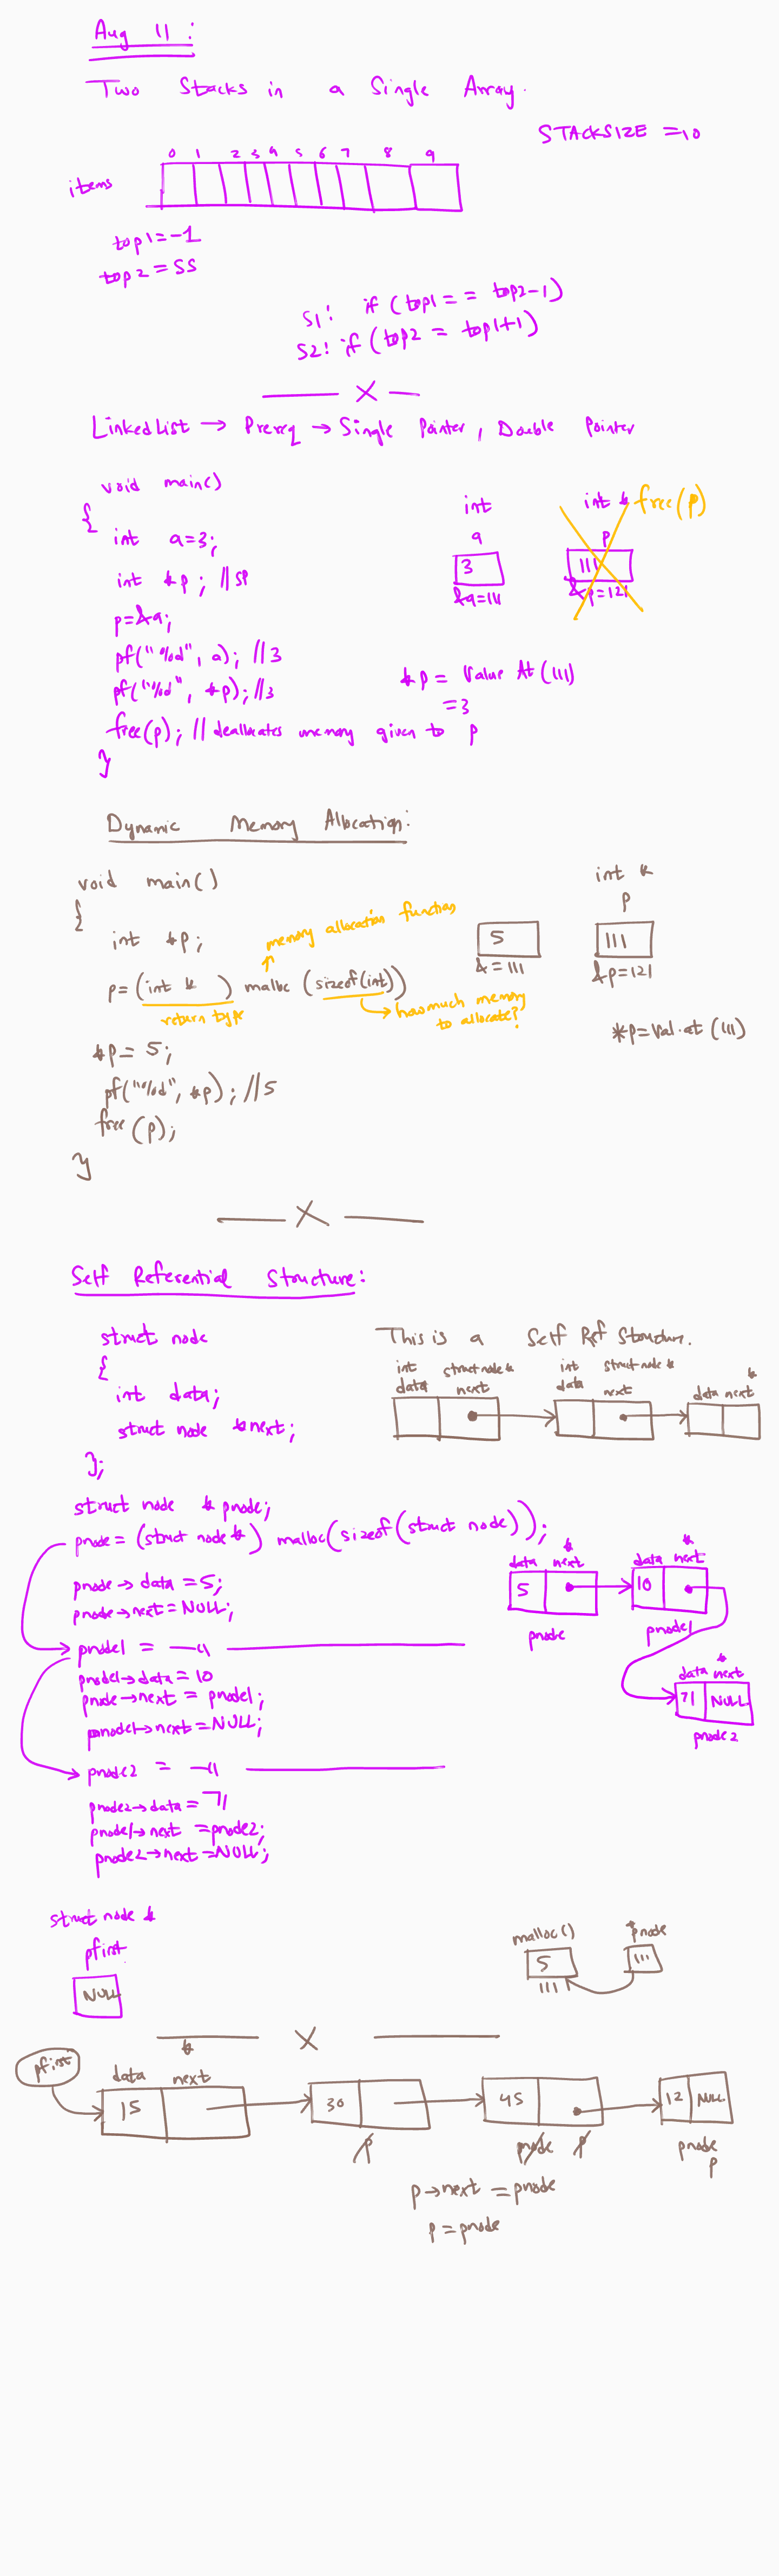 Aug 11:
Two Stacks in a Single Array.
STACKSIZE = 10
0 1 2 3 4 5 6 7 8 9
items
top1=-1
top2=SS
S1: if (top1 == top2-1)
S2: if (top2 = top1+1)
X
Linked List → Prereq → Single Pointer, Double Pointer
void main()
{
int a=3;
int *p; //SP
p=&a;
pf("%d", a); //3
pf("%d", *p); //3
free(p); // deallocates memory given to p
}
int
a
3
&a=111
int *
p
111
&p=121
free(p)
*p = Value At (111)
=3
Dynamic Memory Allocation:
void main()
{
int *p;
memory allocation function
p=(int *) malloc (sizeof(int))
return type
how much memory
to allocate?
*p= 5;
pf("%d", *p); //5
free(p);
}
5
&=111
int *
p
111
&p=121
*p=Val.at (111)
X
Self Referential Structure:
struct node
{
int data;
struct node *next;
};
This is a Self Ref Structure.
int struct node * int struct node * *
data next data next data next
struct node * pnode;
pnode = (struct node *) malloc(sizeof(struct node));
pnode→data = 5;
pnode→next = NULL;
pnode1 = —"—
pnode1→data = 10
pnode→next = pnode1;
pnode1→next = NULL;
pnode2 = —"—
pnode2→data = 71
pnode1→next = pnode2;
pnode2→next = NULL;
* *
data next data next
5 10
pnode pnode1
*
data next
71 NULL
pnode2
struct node *
pfirst
NULL
malloc() *pnode
5 111
111
X
pfirst
*
data next
15 30 45 12 NULL
p pnode p pnode
p
p→next = pnode
p = pnode